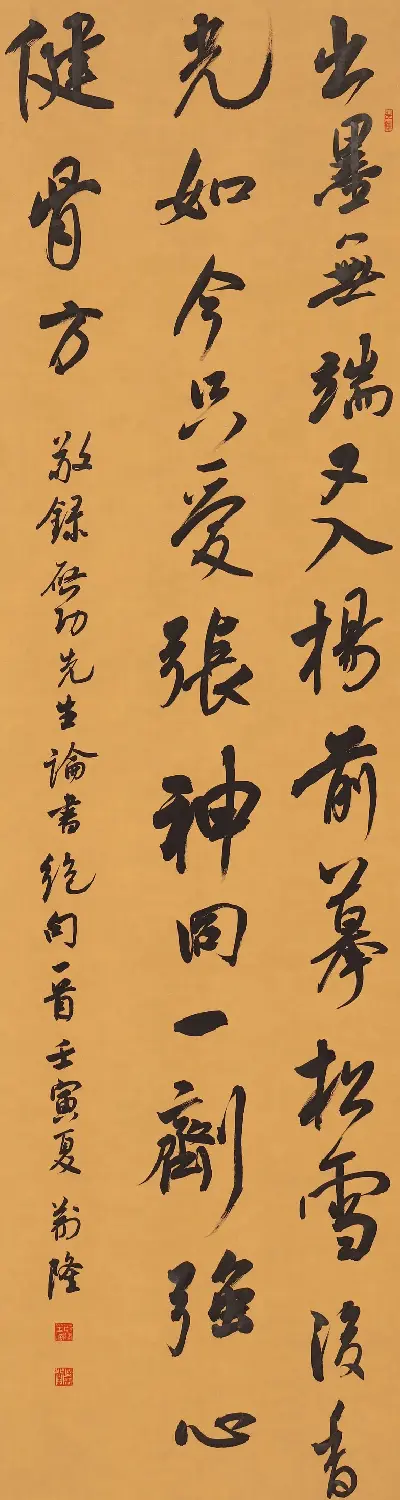 出墨無端又入楊前摹松雪後香
光如今只愛張神冏一劑強心
健骨方
敬錄啟功先生論書絕句一首壬寅夏 荊隆